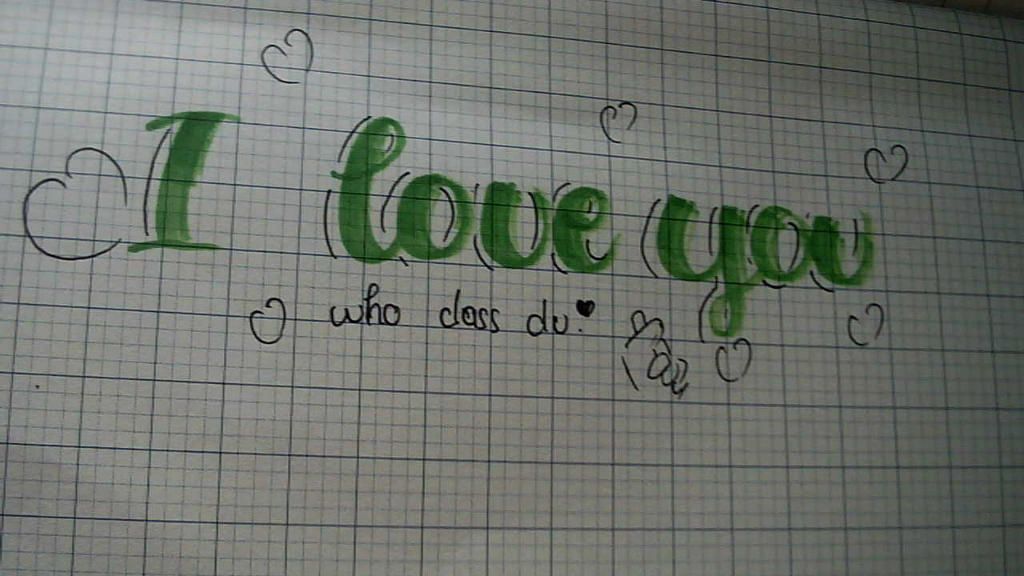 I love you
who dass du?